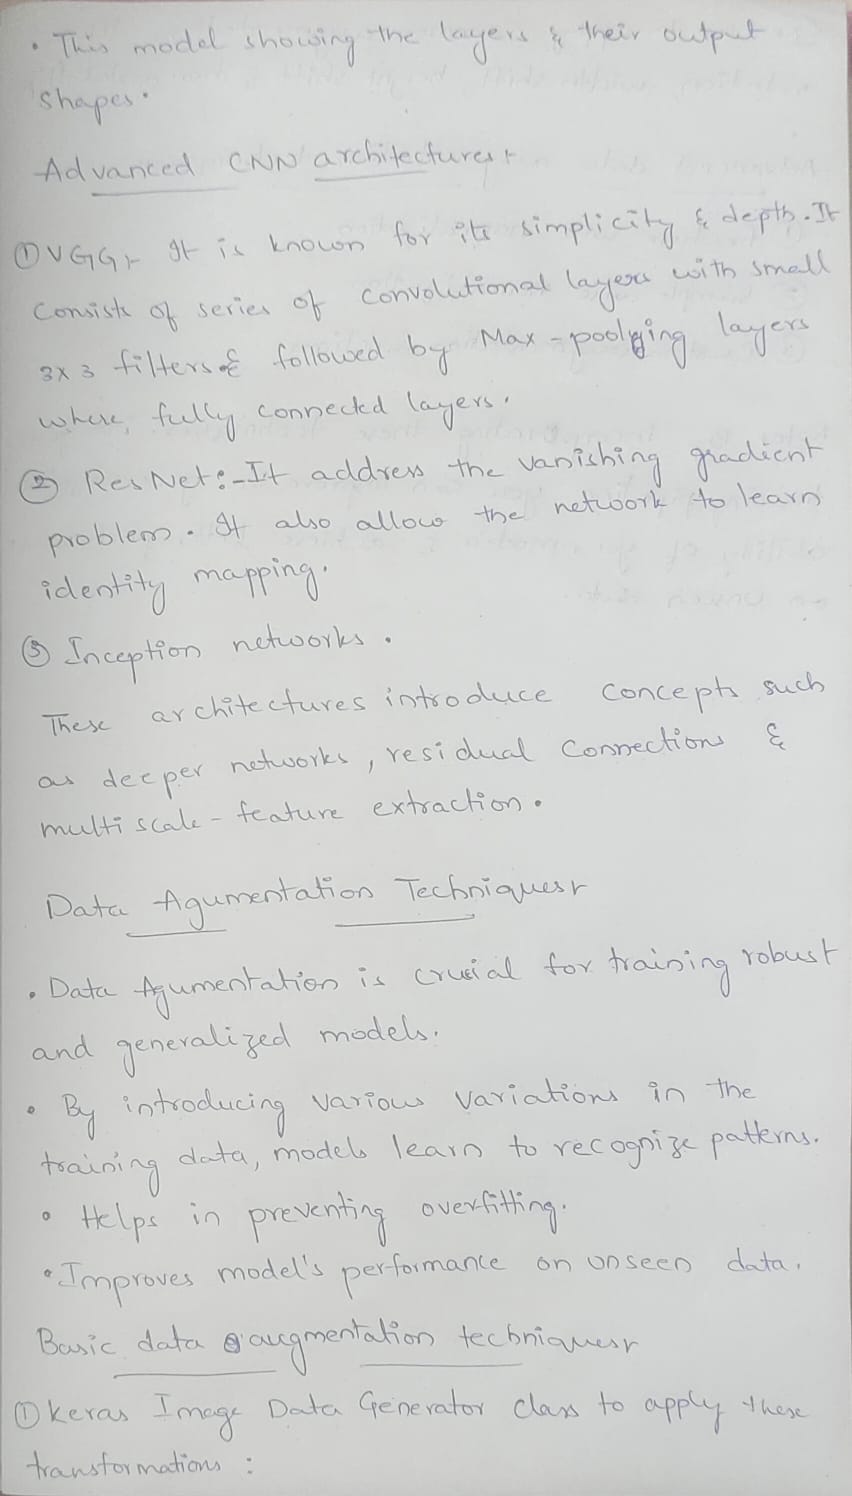 • This model showing the layers & their output
shapes.
Advanced CNN architectures:-
① VGG:- It is known for its simplicity & depth. It
consists of series of convolutional layers with small
3x3 filters & followed by Max-pooling layers
where, fully connected layers.
② ResNet:- It address the vanishing gradient
problem. It also allow the network to learn
identity mapping.
③ Inception networks.
These architectures introduce concepts such
as deeper networks, residual connections &
multi scale - feature extraction.
Data Agumentation Techniques:-
• Data Agumentation is crucial for training robust
and generalized models.
• By introducing various variations in the
training data, models learn to recognize patterns.
• Helps in preventing overfitting.
• Improves model's performance on unseen data.
Basic data augmentation techniques:-
① Keras Image Data Generator class to apply these
transformations :